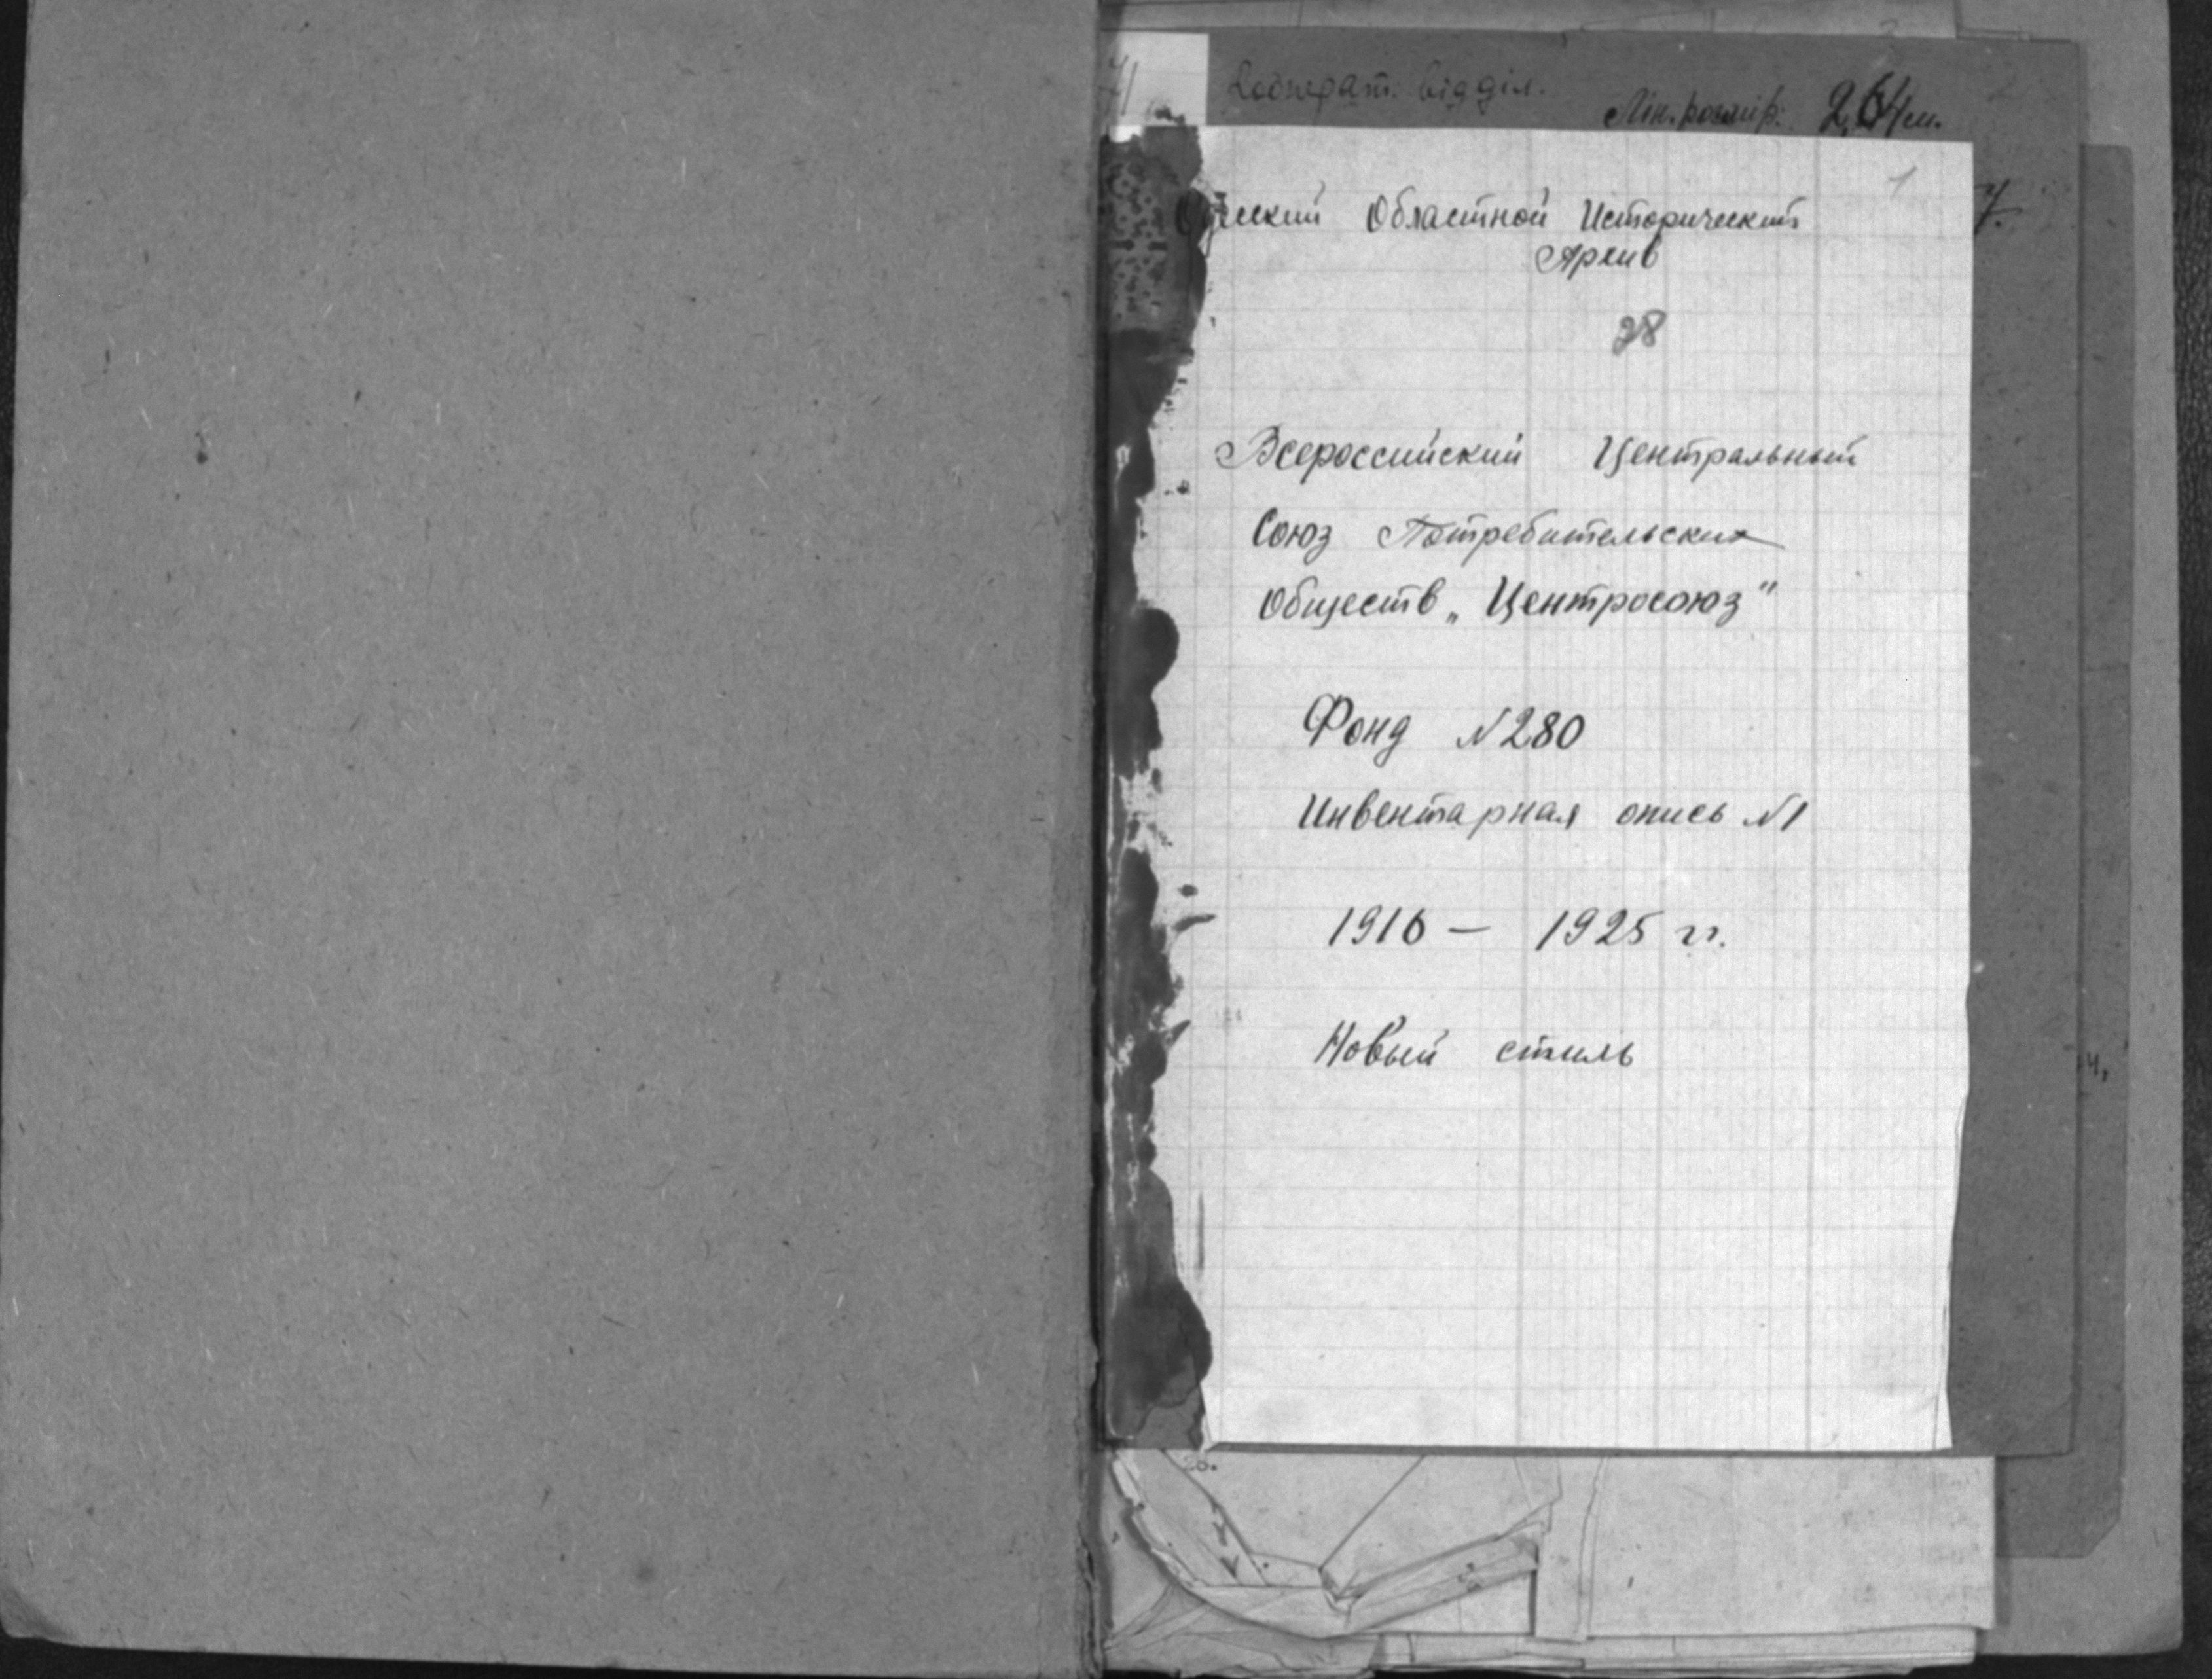 Кооперат. відділ.
Лін. розмір: 2,64 см.
1
Одесский Областной Исторический
Архив
28
Всероссийский Центральный
Союз Потребительских
Обществ „Центросоюз"
Фонд №280
Инвентарная опись №1
1916 — 1925 гг.
Новый стиль